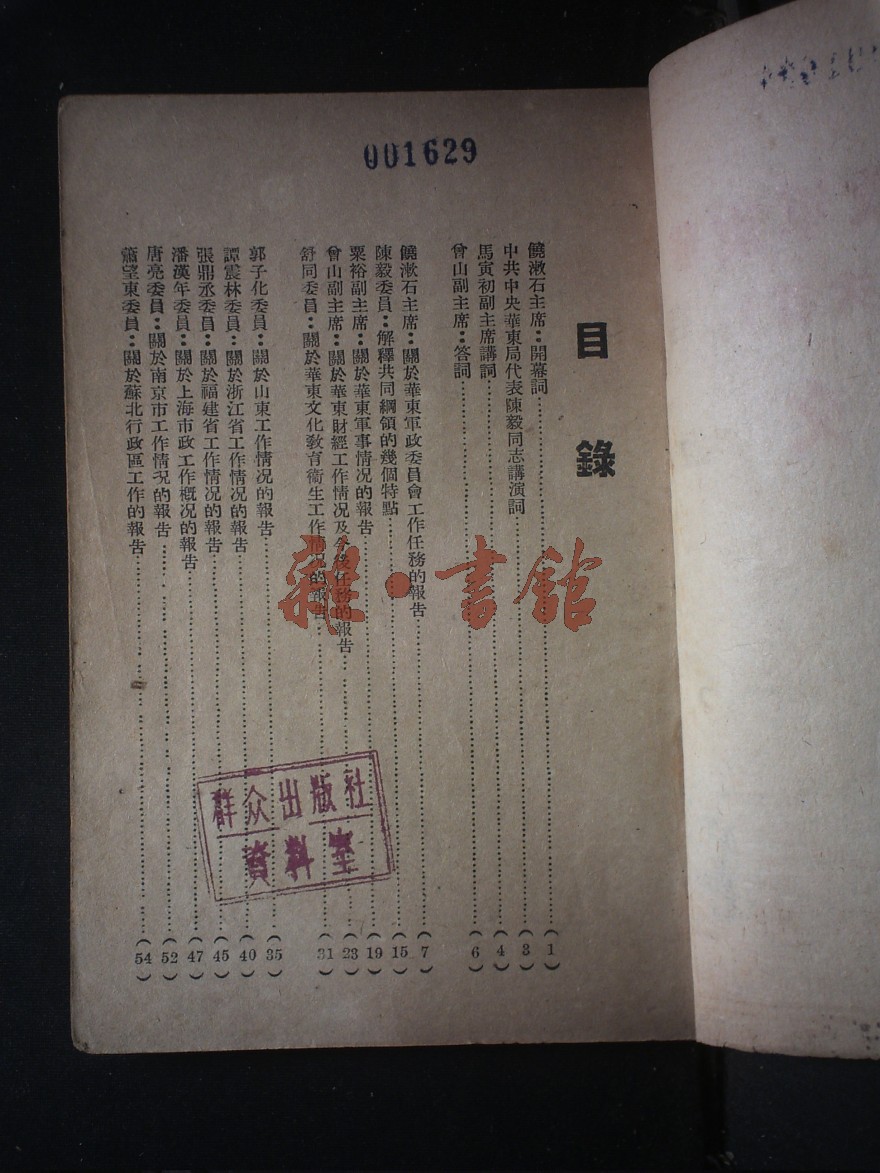 001629
目錄
饒漱石主席：開幕詞（1）
中共中央華東局代表陳毅同志講演詞（3）
馬寅初副主席講詞（4）
曾山副主席：答詞（6）
饒漱石主席：關於華東軍政委員會工作任務的報告（7）
陳毅委員：解釋共同綱領的幾個特點（15）
粟裕副主席：關於華東軍事情况的報告（19）
曾山副主席：關於華東財經工作情况及今後任務的報告（23）
舒同委員：關於華東文化敎育衞生工作情况的報告（31）
郭子化委員：關於山東工作情况的報告（35）
譚震林委員：關於浙江省工作情况的報告（40）
張鼎丞委員：關於福建省工作情况的報告（45）
潘漢年委員：關於上海市政工作概况的報告（47）
唐亮委員：關於南京市工作情况的報告（52）
蕭望東委員：關於蘇北行政區工作的報告（54）
群众出版社
資料室
雜·書館